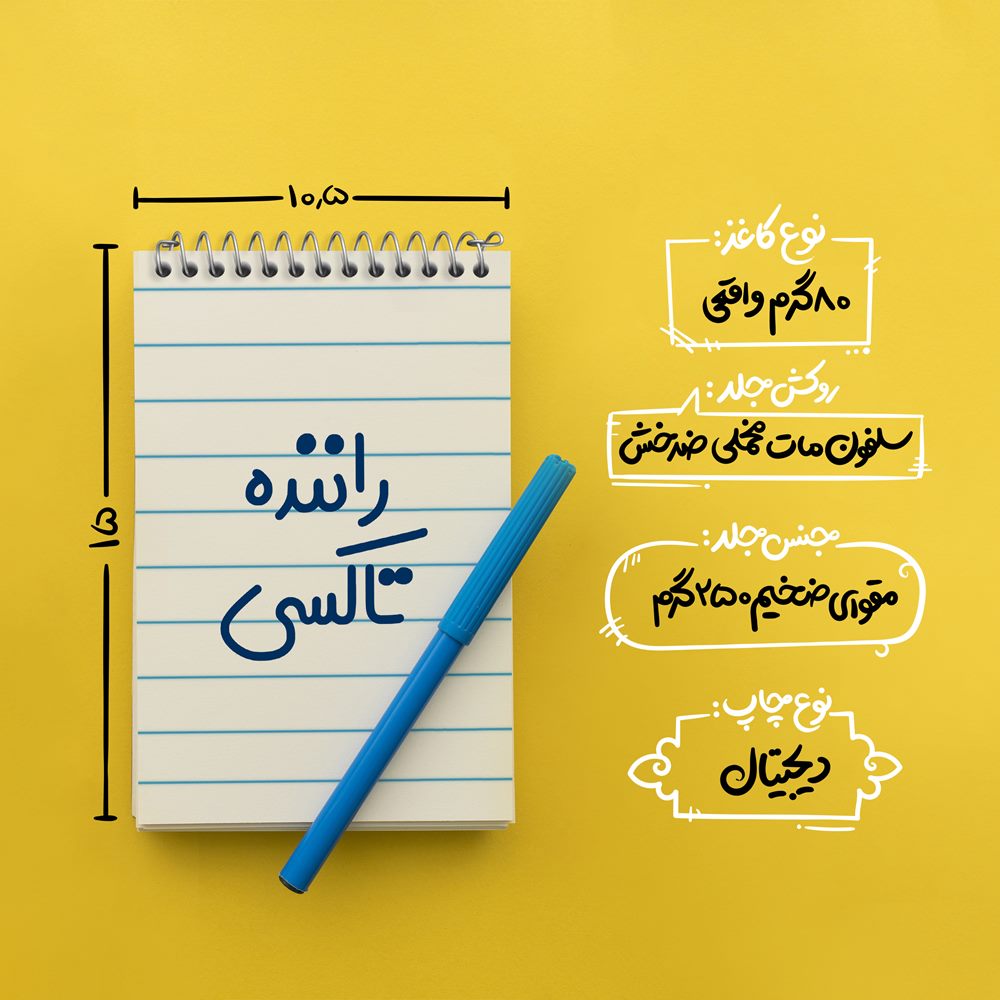 ۱۰٫۵
۱۵
راننده
تاکسی
نوع کاغذ:
۸۰گرم واقعی
روکش جلد:
سلفون مات مخملی ضدخش
جنس جلد:
مقوای ضخیم ۲۵۰گرم
نوع چاپ:
دیجیتال